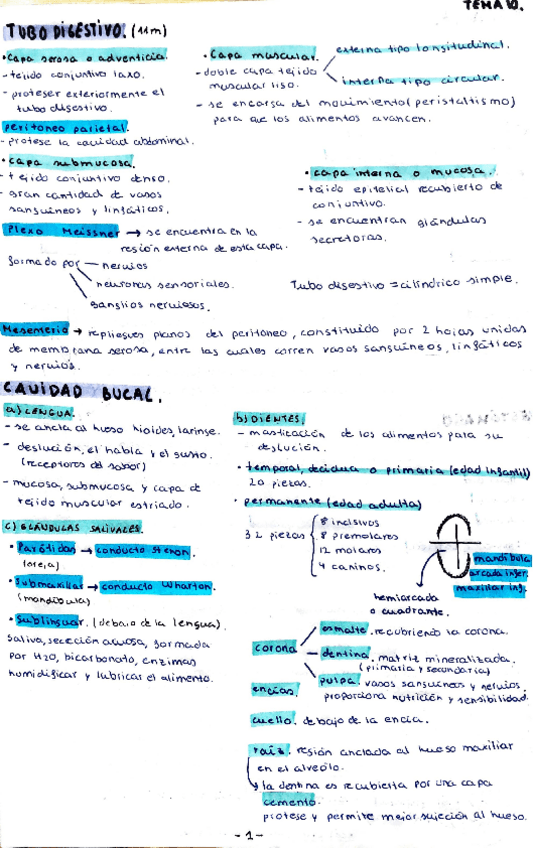 TEMA 10.
TUBO DIGESTIVO. (11m)
• Capa serosa o adventicia.
- tejido conjuntivo laxo.
- proteger exteriormente el
tubo digestivo.
peritoneo parietal.
- protege la cavidad abdominal.
• Capa muscular.
- doble capa tejido
muscular liso.
externa tipo longitudinal.
interna tipo circular.
- se encarga del movimiento (peristaltismo)
para que los alimentos avancen.
• Capa submucosa.
- tejido conjuntivo denso.
- gran cantidad de vasos
sanguíneos y linfáticos.
Plexo Meissner → se encuentra en la
región externa de esta capa.
formado por — nervios
neuronas sensoriales.
ganglios nerviosos.
• capa interna o mucosa.
- tejido epitelial recubierto de
conjuntivo.
- se encuentran glándulas
secretoras.
Tubo digestivo = cilíndrico simple.
Mesenterio → repliegues planos del peritoneo, constituido por 2 hojas unidas
de membrana serosa, entre las cuales corren vasos sanguíneos, linfáticos
y nervios.
CAVIDAD BUCAL.
a) LENGUA.
- se ancla al hueso hioides, laringe.
- deglución, el habla y el gusto.
(receptores del sabor)
- mucosa, submucosa y capa de
tejido muscular estriado.
c) GLÁNDULAS SALIVALES.
• Parótidas → conducto Stenon.
(oreja)
• Submaxilar → conducto Wharton.
(mandíbula)
• Sublinguar. (debajo de la lengua).
Saliva, secreción acuosa, formada
por H2O, bicarbonato, enzimas
humidificar y lubricar el alimento.
b) DIENTES.
- masticación de los alimentos para su
deglución.
• temporal, decidua o primaria (edad infantil)
20 piezas.
• permanente (edad adulta)
32 piezas
8 incisivos
8 premolares
12 molares
4 caninos.
mandíbula
arcada infer.
maxilar inf.
hemiarcada
o cuadrante.
corona
esmalte. recubriendo la corona.
dentina. matriz mineralizada.
(primaria y secundaria)
pulpa. vasos sanguíneos y nervios.
proporciona nutrición y sensibilidad.
encías.
cuello. debajo de la encía.
raíz. región anclada al hueso maxiliar
en el alveolo.
la dentina es recubierta por una capa
cemento.
protege y permite mejor sujeción al hueso.
- 1 -